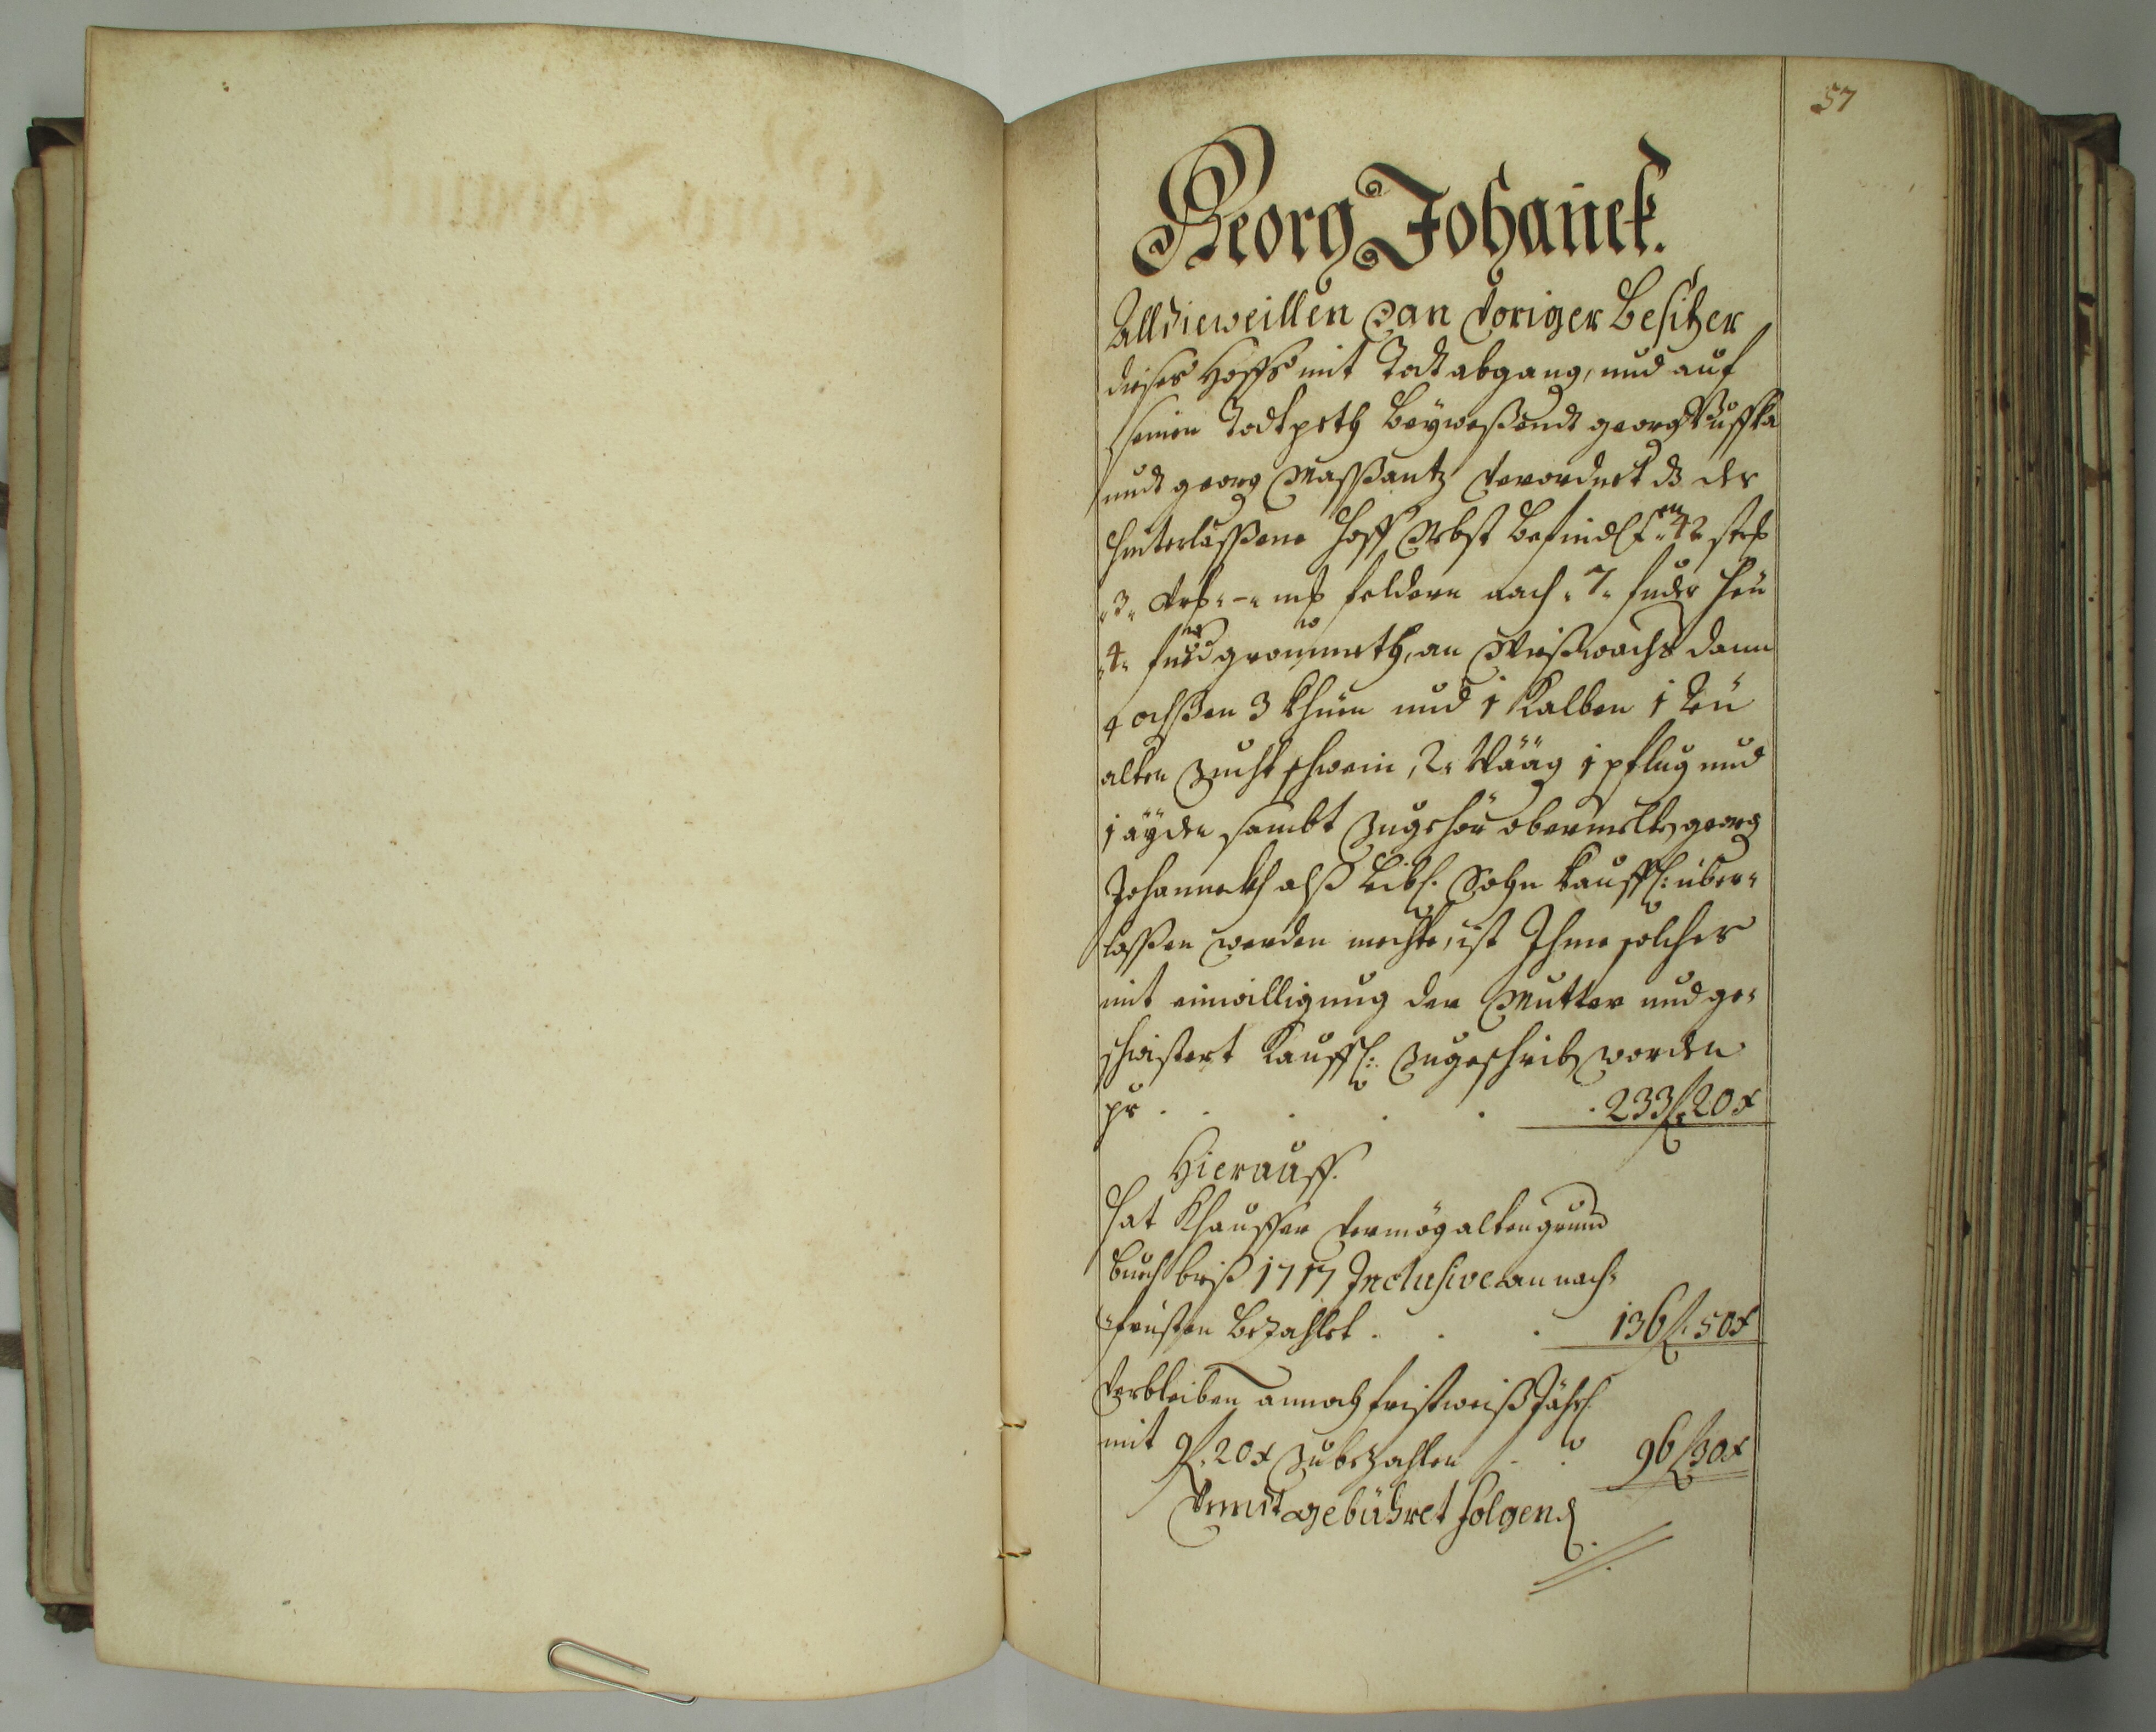 57
Georg Johanek.
Alldieweillen dan voriger Besitzer
dießes Hoffs mit Todt abgang, und auf
seinen Todtpeth beyweßendt georg
undt georg verordnet dz der
hinterlassene Hoff Nebst befindl: 42 strh
"3" Vrtl "-" mßl feldern nach "7" fuder heu
"4" fud grommeth, an Wießwachs dann
4 ochßen 3 Khüen und 1 Kalben 1
alten Zucht schwein, 2 Wääg 1 pflug und
1 äyden sambt Zugehör obermelten georg
Johanneckh alß leibl. Sohn kauffl: über-
lassen werden mechte, ist Ihme solches
mit einwilligung der Mutter und ge-
schwistert Kauffl: zugeschrieb worden
pr . . . . . 233 f 20 x
Hierauff.
hat Khauffer vermög alten grund
buch bieß 1717 Inclusive an nach-
fristen bezahlet . . . 136 f 50 x
Verbleiben annoch fristweiß Jährl.
mit 9 f 20 x zu bezahlen . . 96 f 30 x
gebühret folgend